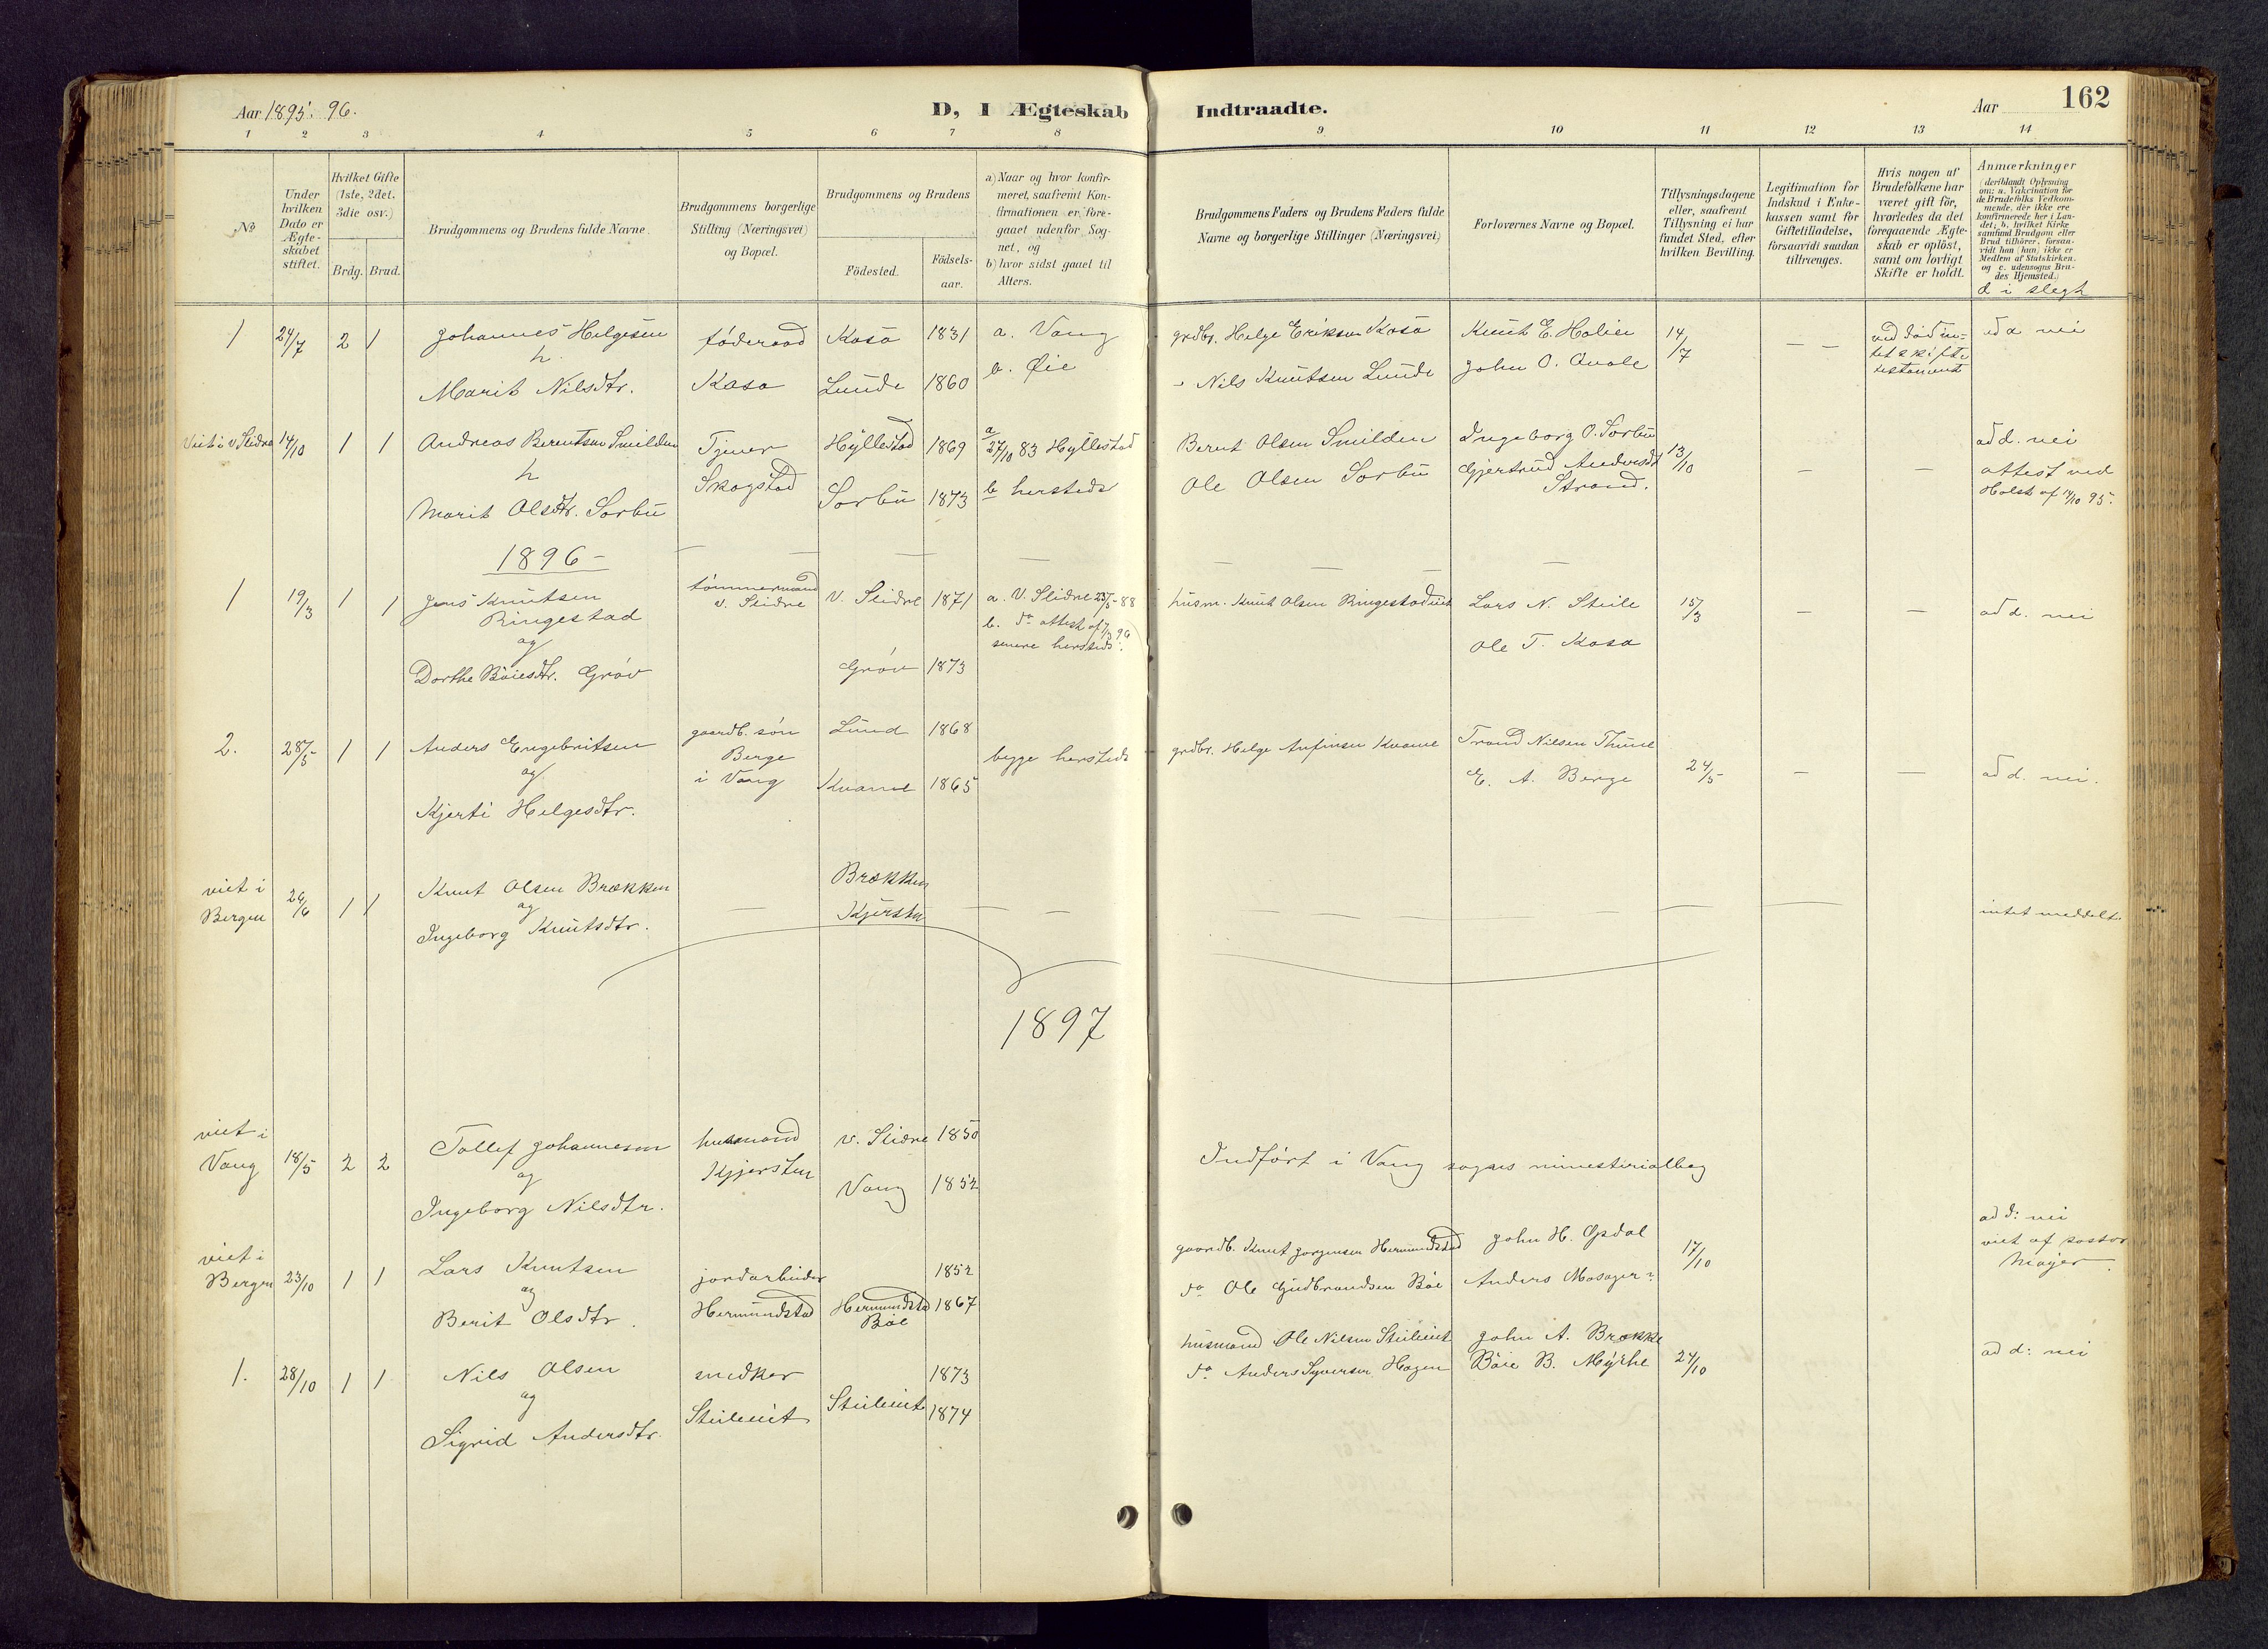 Aar 1895. 96.
D, I Ægteskab Indtraadte.
Aar
162
1 2 3 4 5 6 7 8 9 10 11 12 13 14
No
Under hvilken Dato er Ægteskabet stiftet.
Hvilket Gifte (1ste, 2det, 3die osv.)
Brdg. Brud.
Brudgommens og Brudens fulde Navne.
Brudgommens borgerlige Stilling (Næringsvei) og Bopæl.
Brudgommens og Brudens
Födested.
Födsels-aar.
a) Naar og hvor konfirmeret, saafremt Konfirmationen er foregaaet udenfor Sognet, og
b) hvor sidst gaaet til Alters.
Brudgommens Faders og Brudens Faders fulde Navne og borgerlige Stillinger (Næringsvei)
Forlovernes Navne og Bopæl.
Tillysningsdagene eller, saafremt Tillysning ei har fundet Sted, efter hvilken Bevilling.
Legitimation for Indskud i Enkekassen samt for Giftetilladelse, forsaavidt saadan tiltrænges.
Hvis nogen af Brudefolkene har været gift för, hvorledes da det foregaaende Ægteskab er oplöst, samt om lovligt Skifte er holdt.
Anmærkninger (deriblandt Oplysning om: a. Vakcination for de Brudefolks Vedkommende, der ikke ere konfirmerede her i Landet; b. hvilket Kirkesamfund Brudgom eller Brud tilhörer, forsaavidt han (hun) ikke er Medlem af Statskirken, og c. udensogns Brudes Hjemsted.)
d i slegt
1 24/7 2 1 Johannes Helgesen föderaad Kasa 1831 a. Vang grdbr. Helge Eriksen Kasa Knut E. Holien 14/7 — — ved död intet skifte testament
h.
Marit Nilsdtr. Kasa Lunde 1860 b. Öie " Nils Knutsen Lunde John O. Qvale
Viet i V Slidre 14/10 1 1 Andreas Berentsen Smilden Tjener Hyllestad 1869 a 27/10 83 Hyllestad Bernt Olsen Smilden Ingeborg O. Sörbu 13/10 — — ad d. nei
h
Marit Olsdtr. Sorbu Skogstad Sorbu 1873 b hersteds Ole Olsen Sorbu Gjertrud Andersdt Strand. attest ved Holst af 14/10 95.
1896 —
1 19/3 1 1 Jens Knutsen Ringestad tömmermand v. Slidre V. Slidre 1871 a. V. Slidre 23/5-88 husm. Knut Olsen Ringestadeiet Lars N. Steile 15/3 — — ad d. nei
b. do attest af 7/3 96
senere hersteds.
og
Dorthe Böiesdtr. Gröv Gröv 1873 Ole T. Kasa
2. 28/5 1 1 Anders Engebritsen gaardb. sön Lund 1868 begge hersteds grdbr. Helge Anfinsen Kvame Trond Nilsen Thune 24/5 — — ad d. nei.
og Berge
Kjerti Helgesdtr. i Vang Kvame 1865 E. A. Berge
viet i Bergen 26/6 1 1 Knut Olsen Brækken — Brækken — — — — — — intet meddelt.
og
Ingeborg Knutsdtr. Kjersten
1897
viet i Vang 18/5 2 2 Tollef Johannesen husmand v. Slidre 1850 Indfört i Vang sogns ministerialbog
og
Ingeborg Nilsdtr. Kjjersten Vang 1852
viet i Bergen 23/10 1 1 Lars Knutsen jordarbeider 1852 gaardb. Knut Jorgensen Hermundstad John H. Opdal 17/10 ad d: nei
og
Berit Olsdtr. Hermundstad Hermundstad Böe 1867 do Ole Gudbrandsen Böe Anders Mosager viet af pastor
1. 28/10 1 1 Nils Olsen snedker 1873 husmand Ole Nilsen Steileeiet John A. Brække 24/10 ad d: nei
og
Sigrid Andersdtr. Steileeiet Steileeiet 1874 do Anders Syversen Hagen Böie B. Myrhe